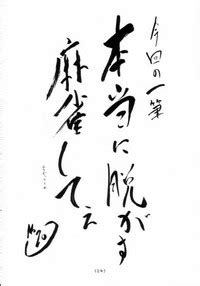 今回の一筆
本当に脱がす
麻雀してぇ